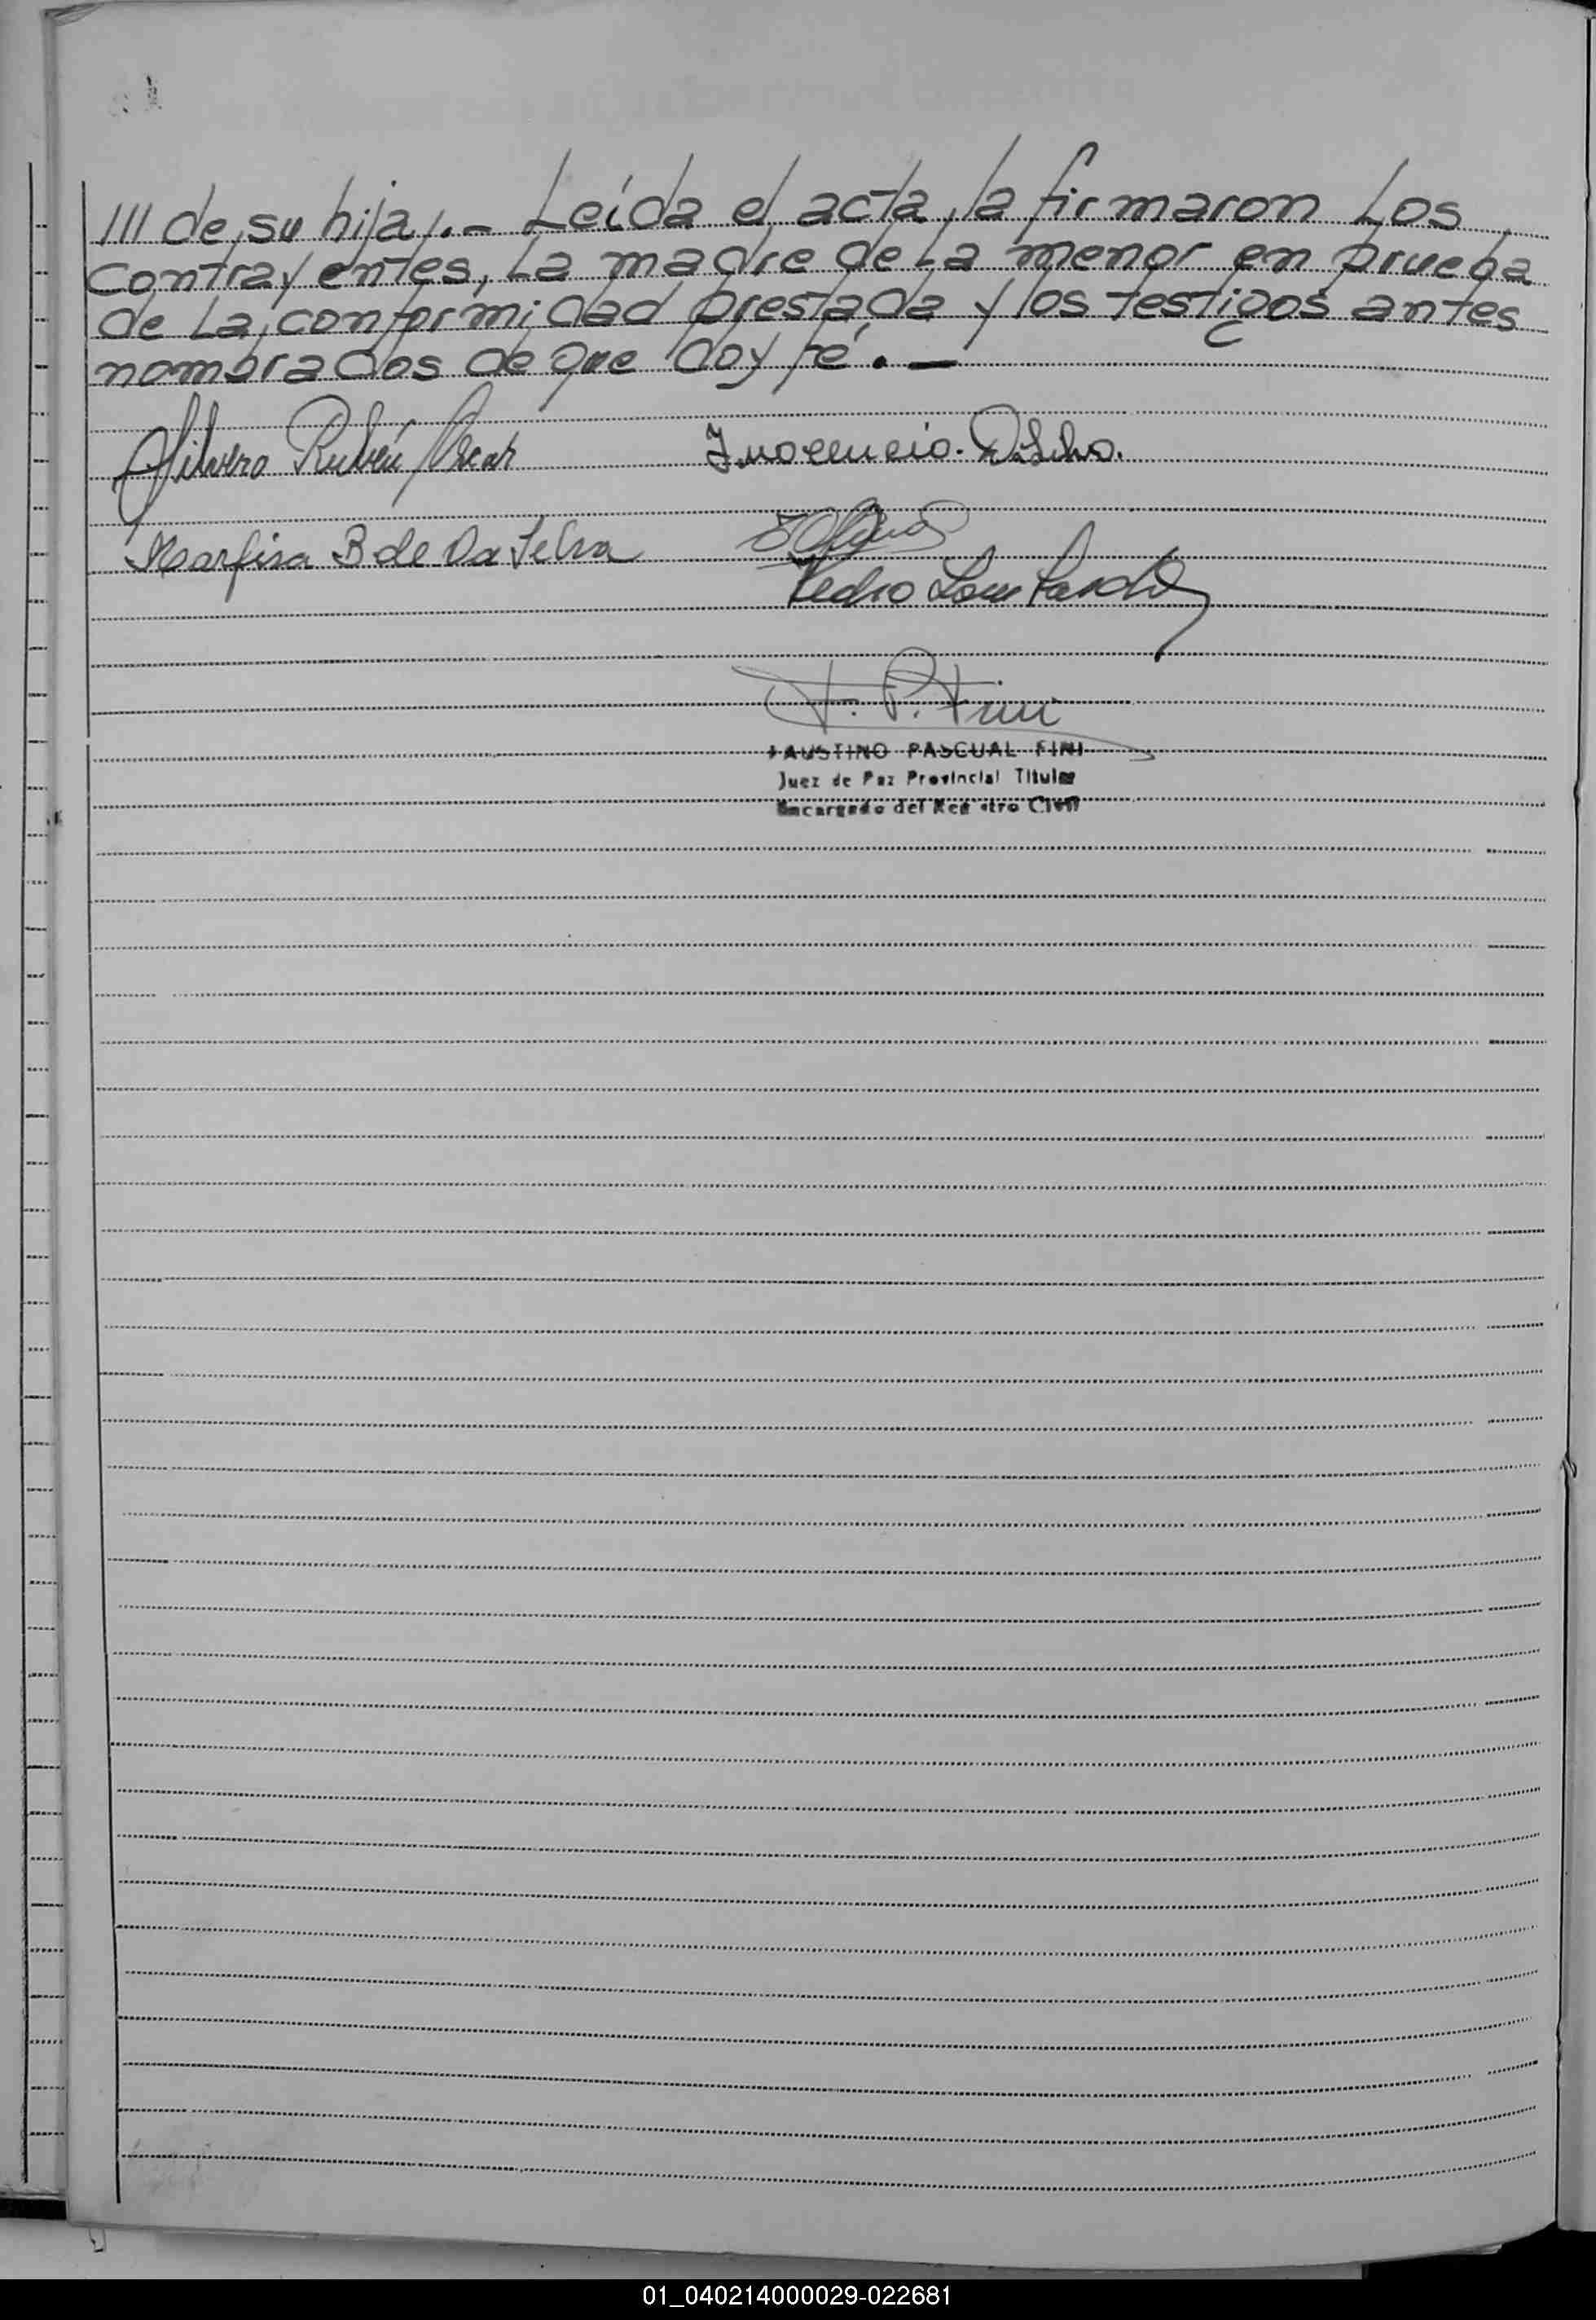 /// de su hija/.- Leída el acta, la firmaron Los
contrayentes, La madre de La menor en prueba
de La conformidad prestada y los testigos antes
nombrados de que doy fé.-
Silvero Rubén Oscar
Inocencio. D. Silva.
Marfisa B de Da Silva
Pedro Lombardi
F. P. Fini
FAUSTINO PASCUAL FINI
Juez de Paz Provincial Titular
Encargado del Registro Civil
01_040214000029-022681